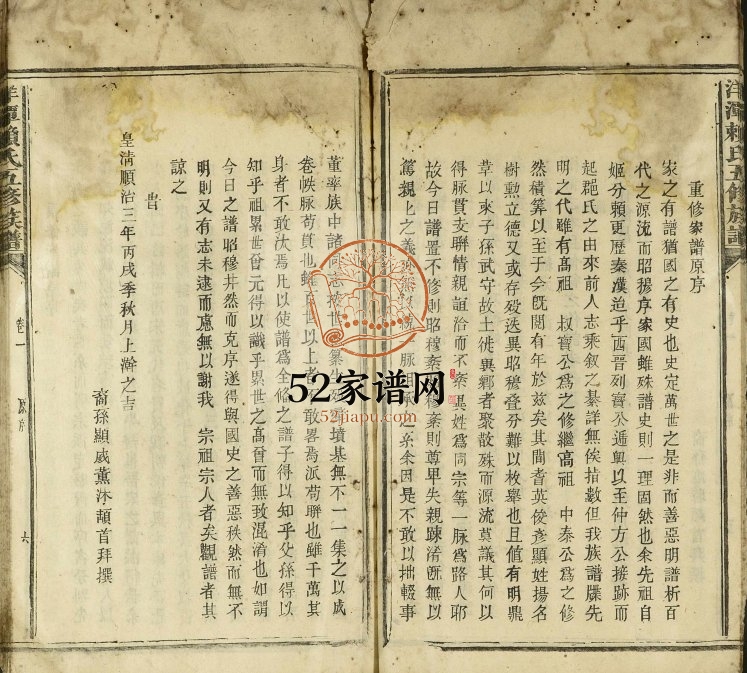 洋潭賴氏五修族譜
重修家譜原序
家之有譜猶國之有史也史定萬世之是非而善惡明譜析百
代之源流而昭穆序家國雖殊譜史則一理固然也余先祖自
姬分賴更歷秦漢迨乎西晉列寶公通輿以至仲方公接跡而
起起氏之由來前人志乘叙之綦詳無俟指數但我族譜牒先
明之代雖有高祖 叔寶公為之修繼高祖 中泰公為之修
然積算以至于今既閱有年於兹矣其間耆英俊彥顯姓揚名
樹勲立德又或存殁迭異昭穆叠分難以枚舉也且值有明鼎
革以來子孫武守故土徙異鄉者聚散殊而源流莫議其何以
得脉貫支聯情親誼洽而不紊異姓為同宗等一脉為路人耶
故今日譜置不修則昭穆紊 穆紊則尊卑失親踈淆既無以
篤親上之義 脉相 之系余因是不敢以拙輟事
董率族中諸同志 世 纂生 墳墓無不一一集之以成
卷帙脉苟貫也雖百世以上者不敢畧焉派苟聯也雖千萬其
身者不敢汰焉凡以使譜為全修之譜子得以知乎父孫得以
知乎祖累世曾元得以識乎累世之高曾而無致混淆也如謂
今日之譜昭穆井然而克序遂得與國史之善惡秩然而無不
明則又有志未逮而慮無以謝我 宗祖宗人者矣觀譜者其
諒之
旹
皇清順治三年丙戌季秋月上澣之吉
裔孫顯威薰沐頓首拜撰
洋潭賴氏五修族譜
卷一
原序
六
52家谱网
52jiapu.com